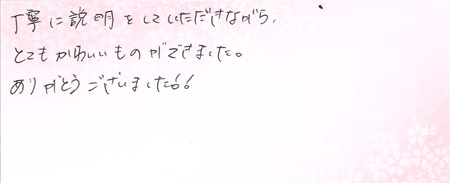 丁寧に説明をしていただきながら、
とてもかわいいものができました。
ありがとうございました!!